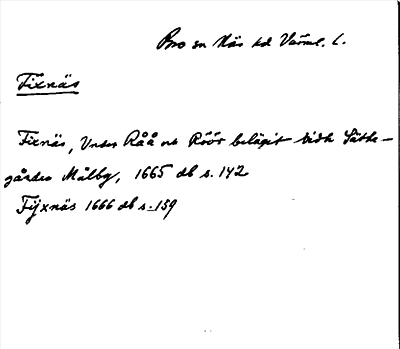 Bro sn Näs hd Värml. l.
Fixnäs
Fixnäs, Under Råå och Röör belägit widh Sätte-
gården Målby, 1665 db s. 142
Fijxnäs 1666 db s. 159